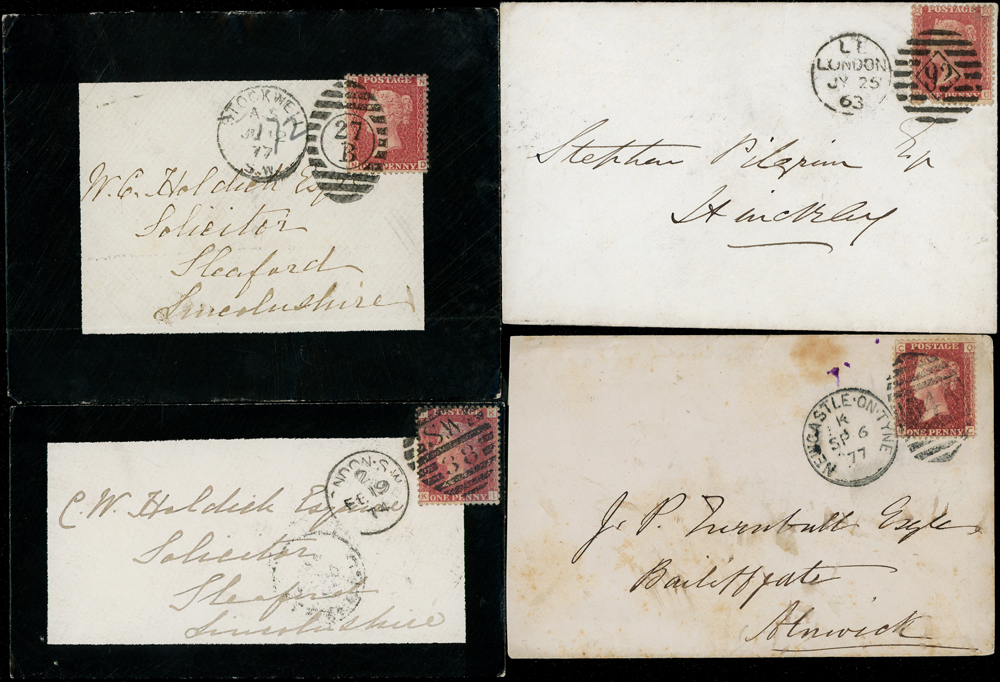 STOCKWELL
A
77
S.W
27
B
POSTAGE
ONE PENNY
D
W. C. Holdich Esqr
Solicitor
Sleaford
Lincolnshire
L I
LONDON
JY 25
63
92
POSTAGE
ONE PENNY
Stephen Pilgrim Esq
Hinckley
LONDON·S.W
FE 19
74
S.W
38
POSTAGE
K ONE PENNY I
C. W. Holdich Esquire
Solicitor
Sleaford
Lincolnshire
NEWCASTLE·ON·TYNE
K
SP 6
77
C POSTAGE Q
ONE PENNY C
J. P. Turnbull Esqre
Bailiffgate
Alnwick